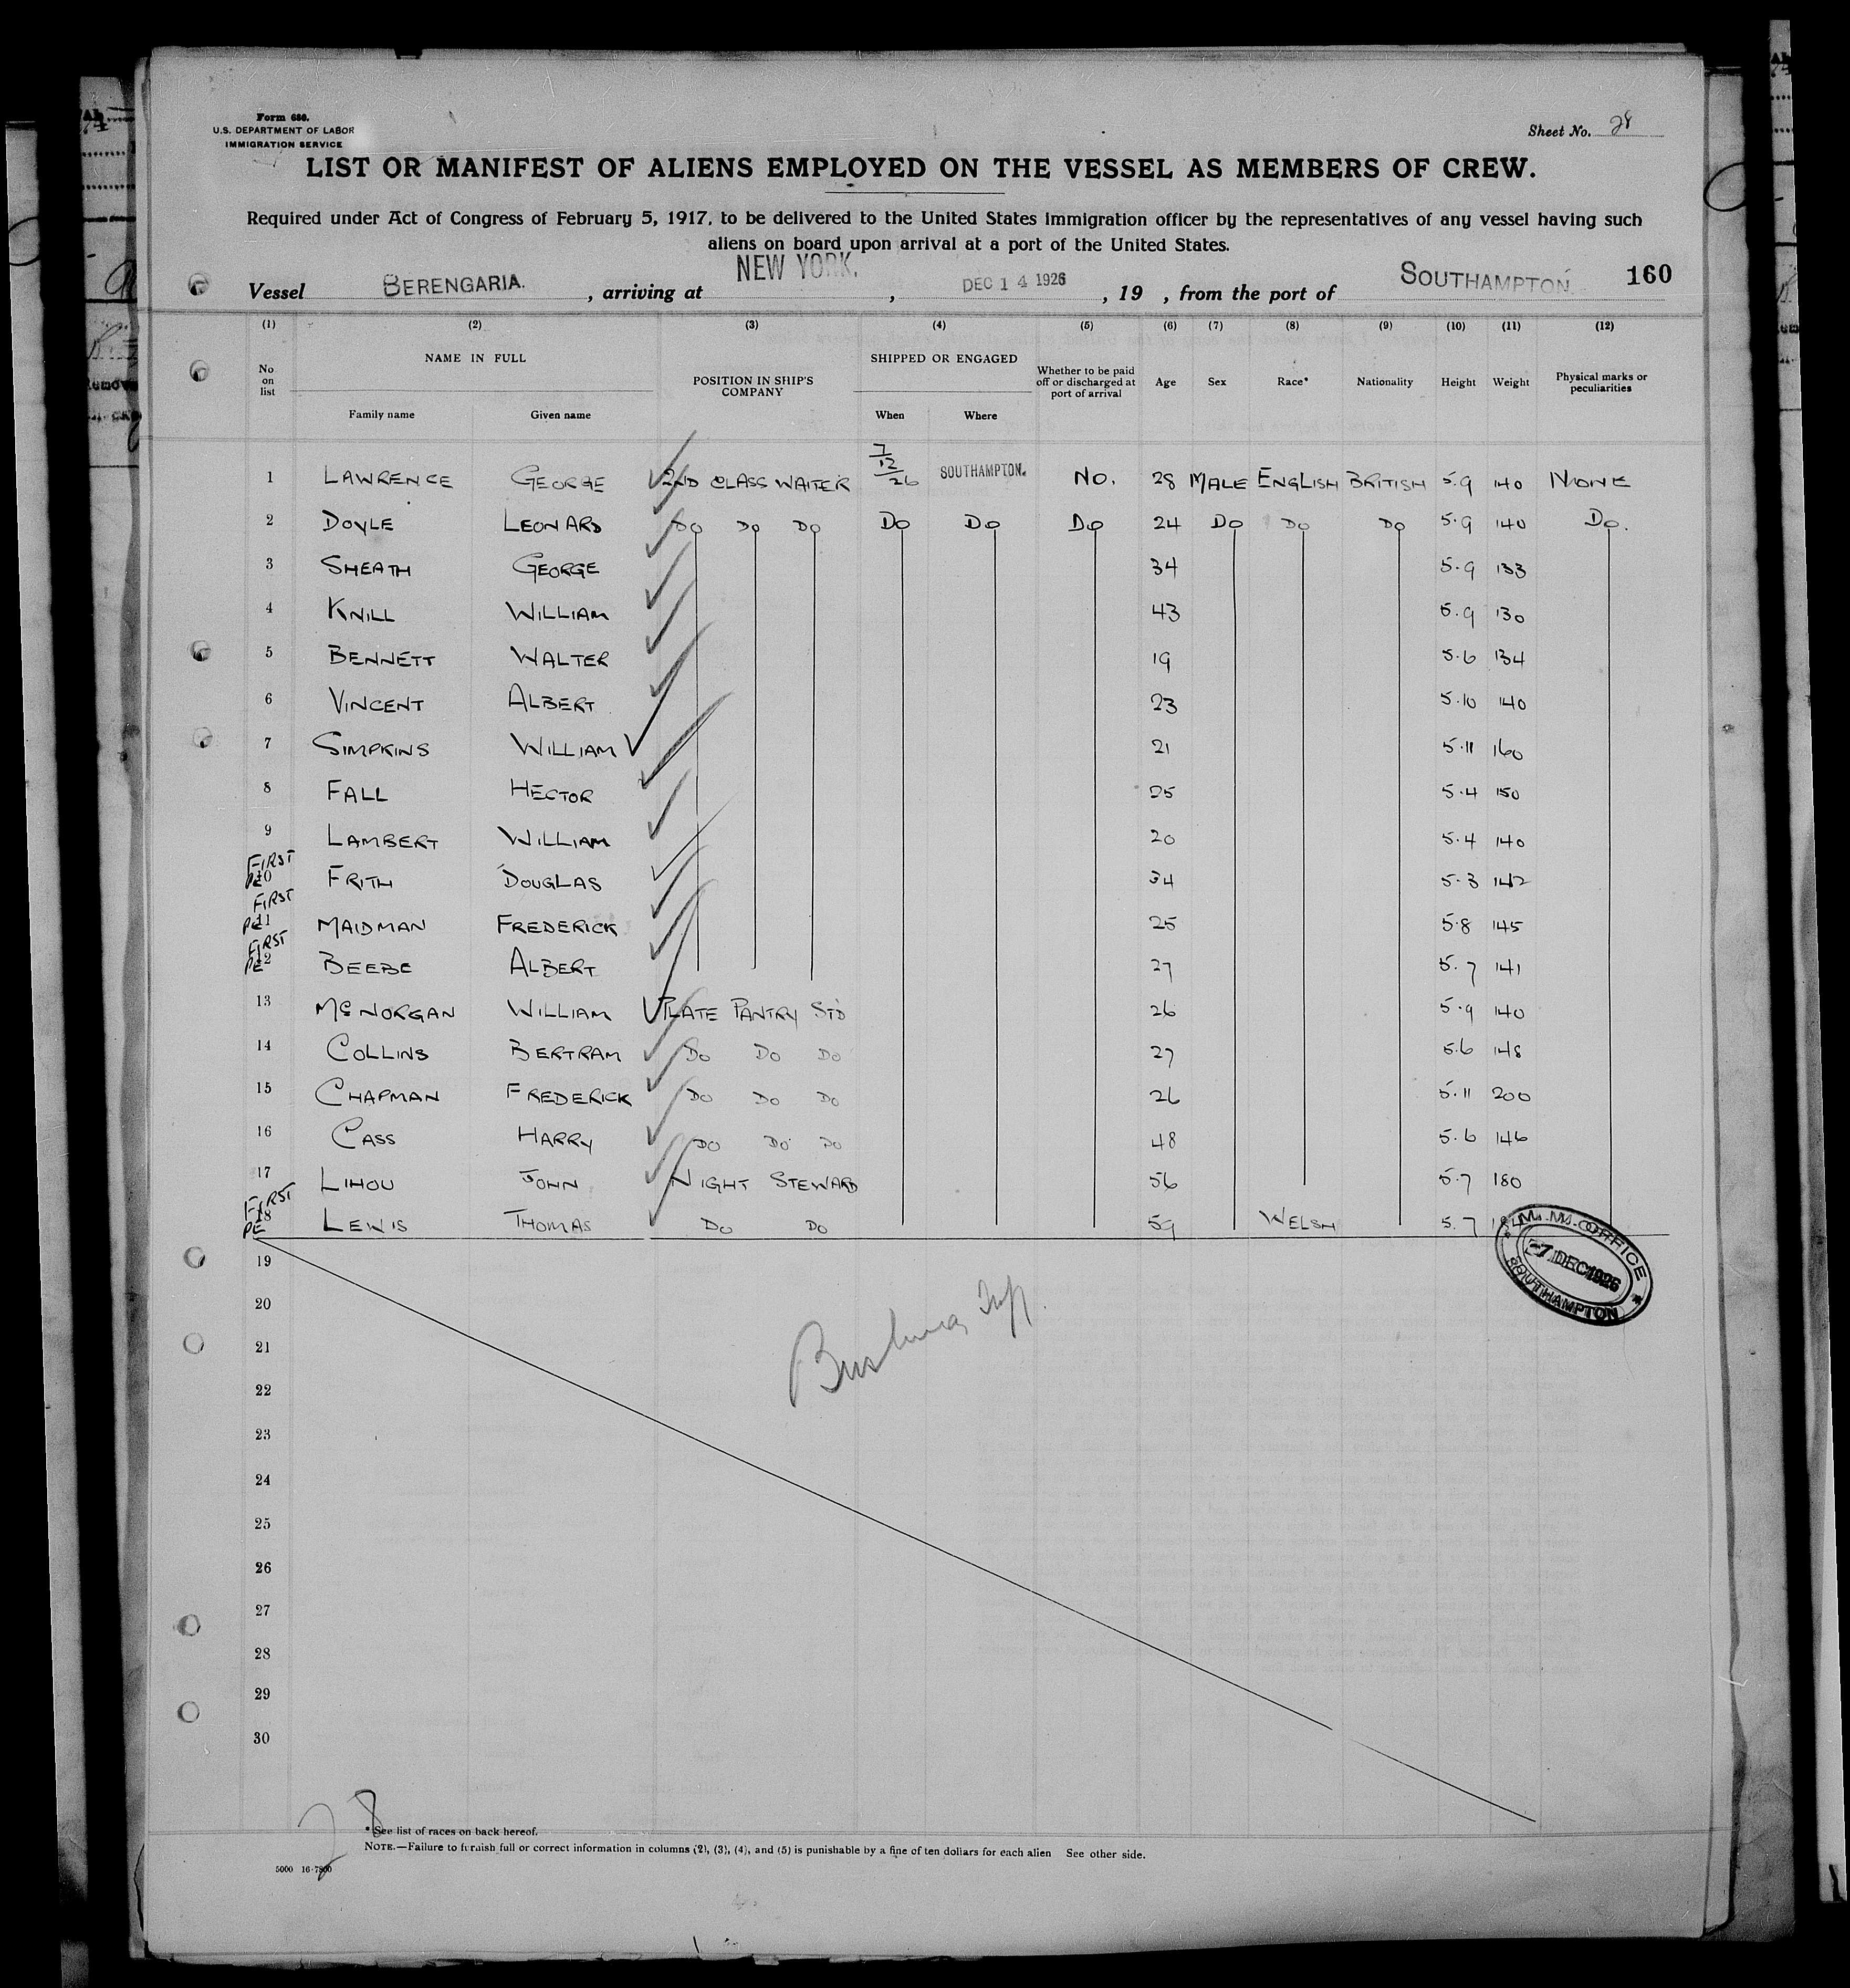 Form 686.
U.S. DEPARTMENT OF LABOR
IMMIGRATION SERVICE
Sheet No. 28
LIST OR MANIFEST OF ALIENS EMPLOYED ON THE VESSEL AS MEMBERS OF CREW.
Required under Act of Congress of February 5, 1917, to be delivered to the United States immigration officer by the representatives of any vessel having such
aliens on board upon arrival at a port of the United States.
Vessel BERENGARIA. , arriving at NEW YORK. , DEC 14 1926 , 19 , from the port of SOUTHAMPTON 160
(1) (2) (3) (4) (5) (6) (7) (8) (9) (10) (11) (12)
No on list NAME IN FULL Family name Given name POSITION IN SHIP'S COMPANY SHIPPED OR ENGAGED When Where Whether to be paid off or discharged at port of arrival Age Sex Race* Nationality Height Weight Physical marks or peculiarities
1 LAWRENCE GEORGE 2ND CLASS WAITER 7/12/26 SOUTHAMPTON. NO. 28 MALE ENGLISH BRITISH 5.9 140 NONE
2 DOYLE LEONARD DO DO DO DO DO DO 24 DO DO DO 5.9 140 DO.
3 SHEATH GEORGE 34 5.9 133
4 KNILL WILLIAM 43 5.9 130
5 BENNETT WALTER 19 5.6 134
6 VINCENT ALBERT 23 5.10 140
7 SIMPKINS WILLIAM 21 5.11 160
8 FALL HECTOR 25 5.4 150
9 LAMBERT WILLIAM 20 5.4 140
FIRST PE 10 FRITH DOUGLAS 34 5.3 142
FIRST PE 11 MAIDMAN FREDERICK 25 5.8 145
FIRST PE 12 BEEBE ALBERT 27 5.7 141
13 McNORGAN WILLIAM PLATE PANTRY STD 26 5.9 140
14 COLLINS BERTRAM DO DO DO 27 5.6 148
15 CHAPMAN FREDERICK DO DO DO 26 5.11 200
16 CASS HARRY DO DO DO 48 5.6 146
17 LIHOU JOHN NIGHT STEWARD 56 5.7 180
FIRST PE 18 LEWIS THOMAS DO DO 59 WELSH 5.7
M.M. OFFICE
-7 DEC 1926
SOUTHAMPTON
19
20
21
22
23
24
25
26
27
28
29
30
28
* See list of races on back hereof.
NOTE.—Failure to furnish full or correct information in columns (2), (3), (4), and (5) is punishable by a fine of ten dollars for each alien See other side.
5000 16-7800